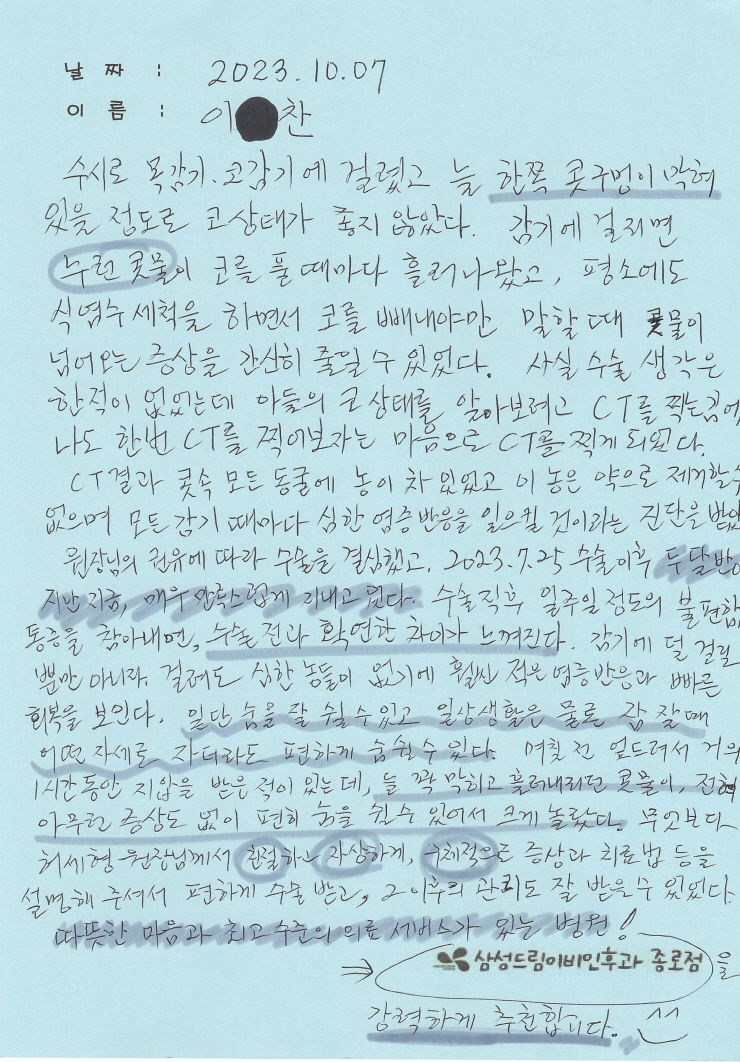 날 짜 : 2023.10.07
이 름 : 이 찬
수시로 목감기, 코감기에 걸렸고 늘 한쪽 콧구멍이 막혀
있을 정도로 코상태가 좋지 않았다. 감기에 걸지면
누런 콧물이 코를 풀 때마다 흘러나왔고, 평소에도
식염수 세척을 하면서 코를 빼내야만 말할 때 콧물이
넘어오는 증상을 간신히 줄일 수 있었다. 사실 수술 생각은
한적이 없었는데 아들의 코상태를 알아보려고 CT를 찍는김에
나도 한번 CT를 찍어보자는 마음으로 CT를 찍게 되었다.
CT결과 콧속 모든 동굴에 농이 차 있었고 이 농은 약으로 제거할수
없으며 모든감기 때마다 심한 염증반응을 일으킬 것이라는 진단을 받았
원장님의 권유에 따라 수술을 결심했고, 2023.7.25 수술이후 두달반이
지난 지금, 매우 만족스럽게 지내고 있다. 수술직후 일주일 정도의 불편함
통증을 참아내면, 수술 전과 확연한 차이가 느껴진다. 감기에 덜 걸릴
뿐만 아니라, 걸려도 심한 농들이 없기에 훨씬 적은 염증반응과 빠른
회복을 보인다. 일단 숨을 잘 쉴 수 있고 일상생활은 물론 잠 잘때
어떤 자세로 자더라도 편하게 숨쉴 수 있다. 며칠 전 엎드려서 거의
1시간 동안 지압을 받은 적이 있는데, 늘 꽉 막히고 흘러내리던 콧물이, 전혀
아무런 증상도 없이 편히 숨을 쉴수 있어서 크게 놀랐다. 무엇보다
허세형 원장님께서 친절하고 자상하게, 구체적으로 증상과 치료법 등을
설명해 주셔서 편하게 수술 받고, 그 이후의 관리도 잘 받을 수 있었다.
따뜻한 마음과 최고 수준의 의료 서비스가 있는 병원!
⇒ 삼성드림이비인후과 종로점 을
강력하게 추천합니다. ^^